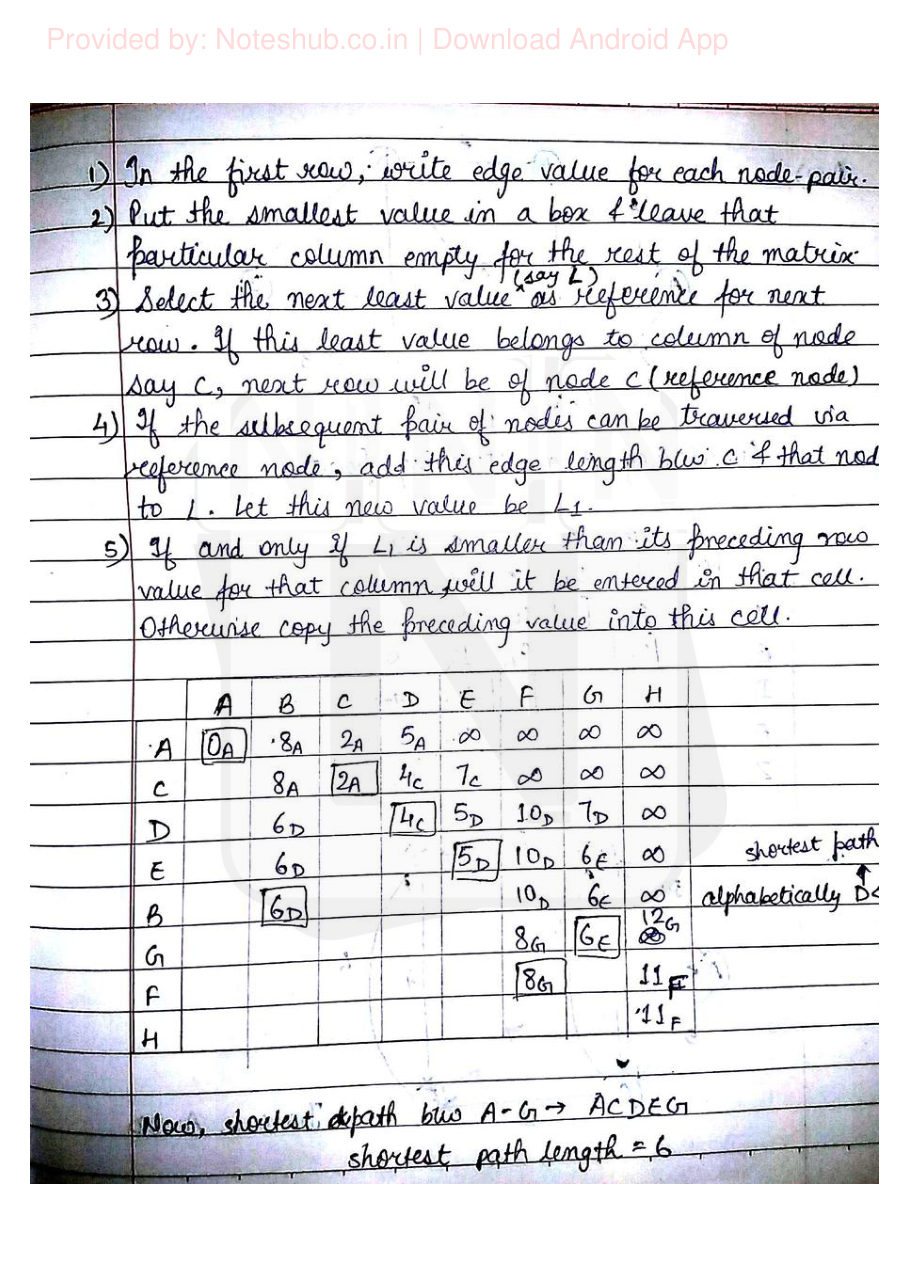 Provided by: Noteshub.co.in | Download Android App
1) In the first row, write edge value for each node-pair.
2) Put the smallest value in a box & leave that
particular column empty for the rest of the matrix
3) Select the next least value (say L) as reference for next
row. If this least value belongs to column of node
say C, next row will be of node C (reference node)
4) If the subsequent pair of nodes can be traversed via
reference node, add this edge length b/w C & that nod
to L. Let this new value be L1.
5) If and only if L1 is smaller than its preceding row
value for that column will it be entered in that cell.
Otherwise copy the preceding value into this cell.
A B C D E F G H
A 0A 8A 2A 5A ∞ ∞ ∞ ∞
C 8A 2A 4C 7C ∞ ∞ ∞
D 6D 4C 5D 10D 7D ∞
E 6D 5D 10D 6E ∞ shortest path
B 6D 10D 6E ∞ alphabetically D<
G 8G 6E 12G
F 8G 11F
H 11F
Now, shortest path b/w A-G → ACDEG
shortest path length = 6